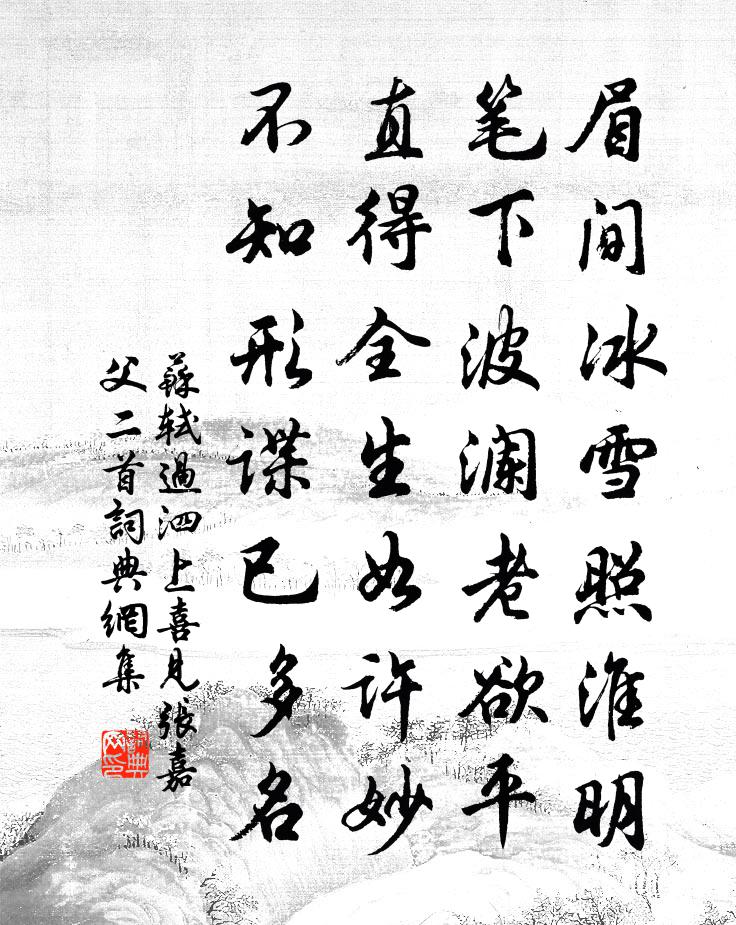 眉间冰雪照淮明
笔下波澜老欲平
直得全生如许妙
不知形谍已多名
蘇轼過泗上喜見張嘉
父二首詞典網集